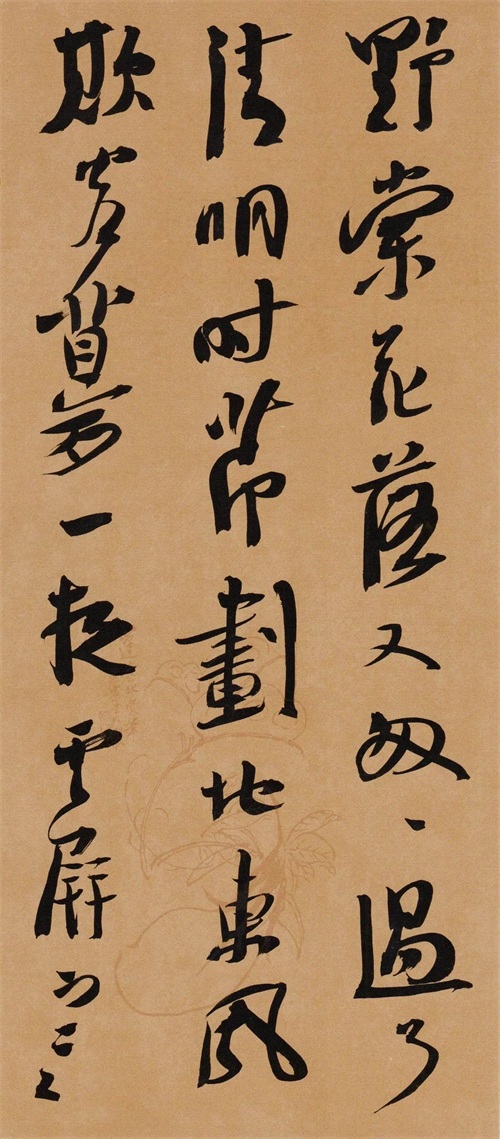 野棠花落又匆々過了
清明时節劃地東風
欺客夢一枕云屏